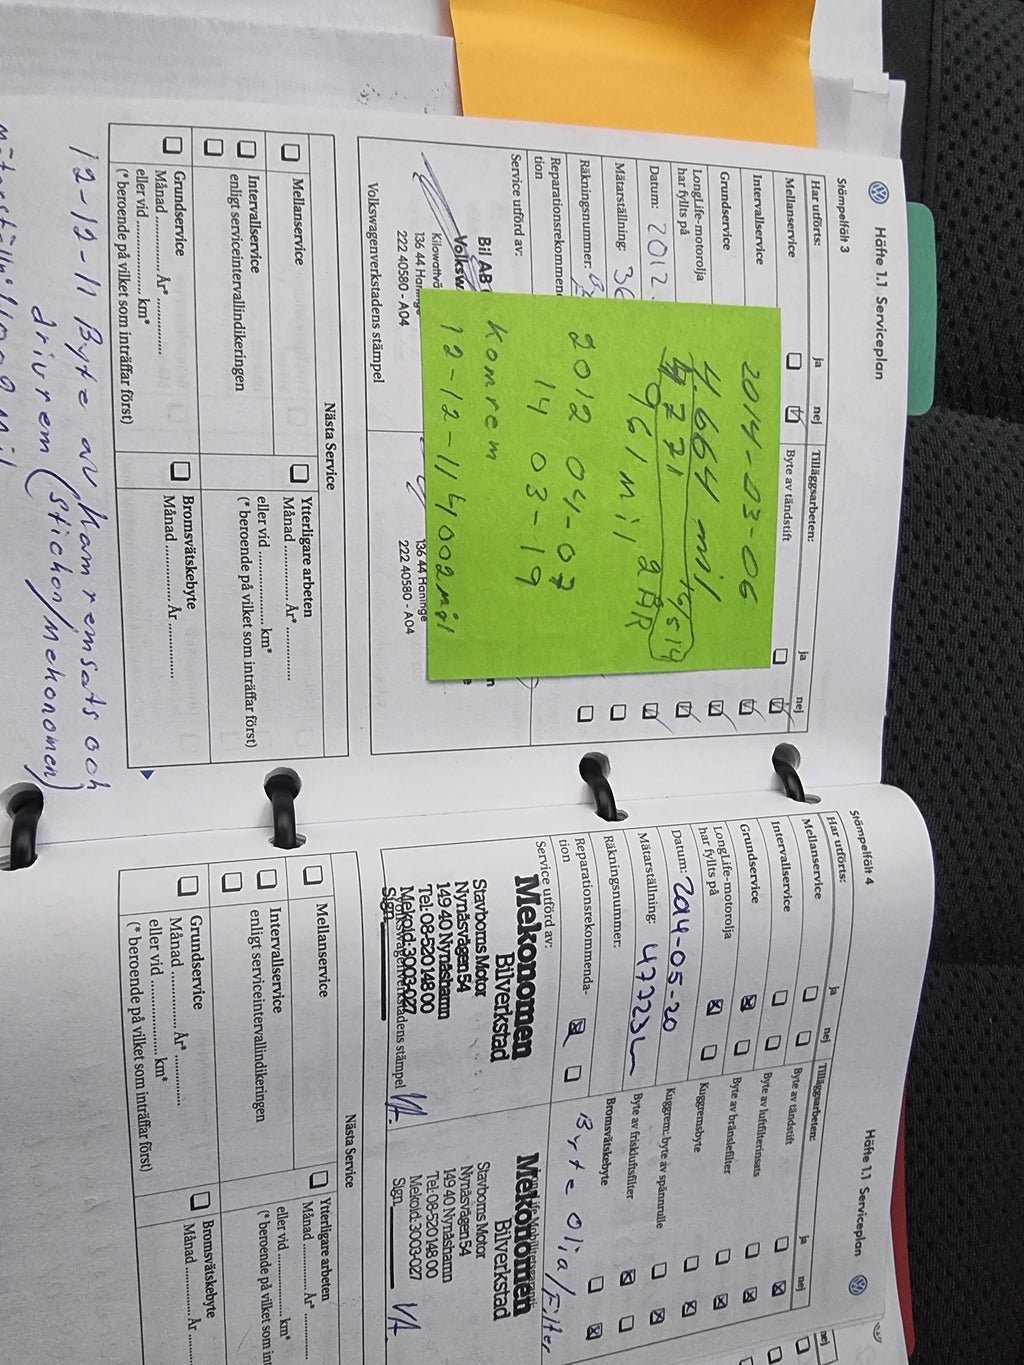 Häfte 1.1 Serviceplan
Stämpelfält 3
Har utförts:
ja
nej
Tilläggsarbeten:
ja
nej
Mellanservice
Byte av tändstift
Intervallservice
Grundservice
LongLife-motorolja
har fyllts på
Datum: 2012.
Mätarställning: 36
Räkningsnummer:
Reparationsrekommen
tion
Service utförd av:
Bil AB
Volksw
136 44 Haninge
222 40580 - A04
136 44 Haninge
222 40580 - A04
Volkswagenverkstadens stämpel
2014-03-06
4.664 mil
961 mil 2 ÅR
2012 04-07
14 03-19
Komrem
12-12-11 4002 mil
Nästa Service
Mellanservice
Intervallservice
enligt serviceintervallindikeringen
Grundservice
Månad ............... År* ...............
eller vid ............... km*
(* beroende på vilket som inträffar först)
Ytterligare arbeten
Månad ............... År* ...............
eller vid ............... km*
(* beroende på vilket som inträffar först)
Bromsvätskebyte
Månad ............... År ...............
12-12-11 Byte av kamremsats och
drivrem (stichon/Mekonomen)
Häfte 1.1 Serviceplan
Stämpelfält 4
Har utförts:
ja
nej
Tilläggsarbeten:
ja
nej
Mellanservice
Byte av tändstift
Intervallservice
Byte av luftfilterinsats
Grundservice
Byte av bränslefilter
LongLife-motorolja
har fyllts på
Kuggremsbyte
Datum: 2014-05-20
Kuggrem: byte av spännrulle
Mätarställning: 47723
Byte av friskluftsfilter
Räkningsnummer:
Bromsvätskebyte
Reparationsrekommenda-
tion
Byte Olja/Filter
Service utförd av:
Mekonomen
Bilverkstad
Stavborns Motor
Nynäsvägen 54
149 40 Nynäshamn
Tel: 08-520 148 00
Mekoid: 3003-027
Sign.
Volkswagenverkstadens stämpel
Mekonomen
Bilverkstad
Stavborns Motor
Nynäsvägen 54
149 40 Nynäshamn
Tel: 08-520 148 00
Mekoid: 3003-027
Sign.
Nästa Service
Mellanservice
Intervallservice
enligt serviceintervallindikeringen
Grundservice
Månad ............... År* ...............
eller vid ............... km*
(* beroende på vilket som inträffar först)
Ytterligare arbeten
Månad ............... År* ...............
eller vid ............... km*
(* beroende på vilket som in
Bromsvätskebyte
Månad ............... År
nej